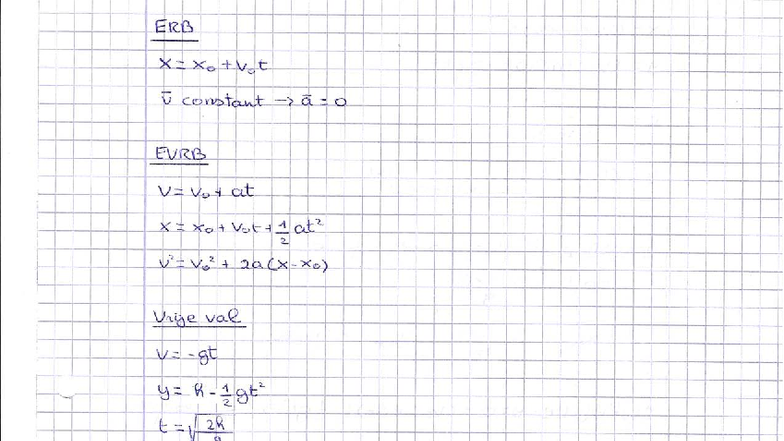 ERB
x = x₀ + v₀t
v̄ constant → ā = 0
EVRB
v = v₀ + at
x = x₀ + v₀t + ½at²
v² = v₀² + 2a(x - x₀)
Vrije val
v = -gt
y = h - ½gt²
t = √(2h/g)